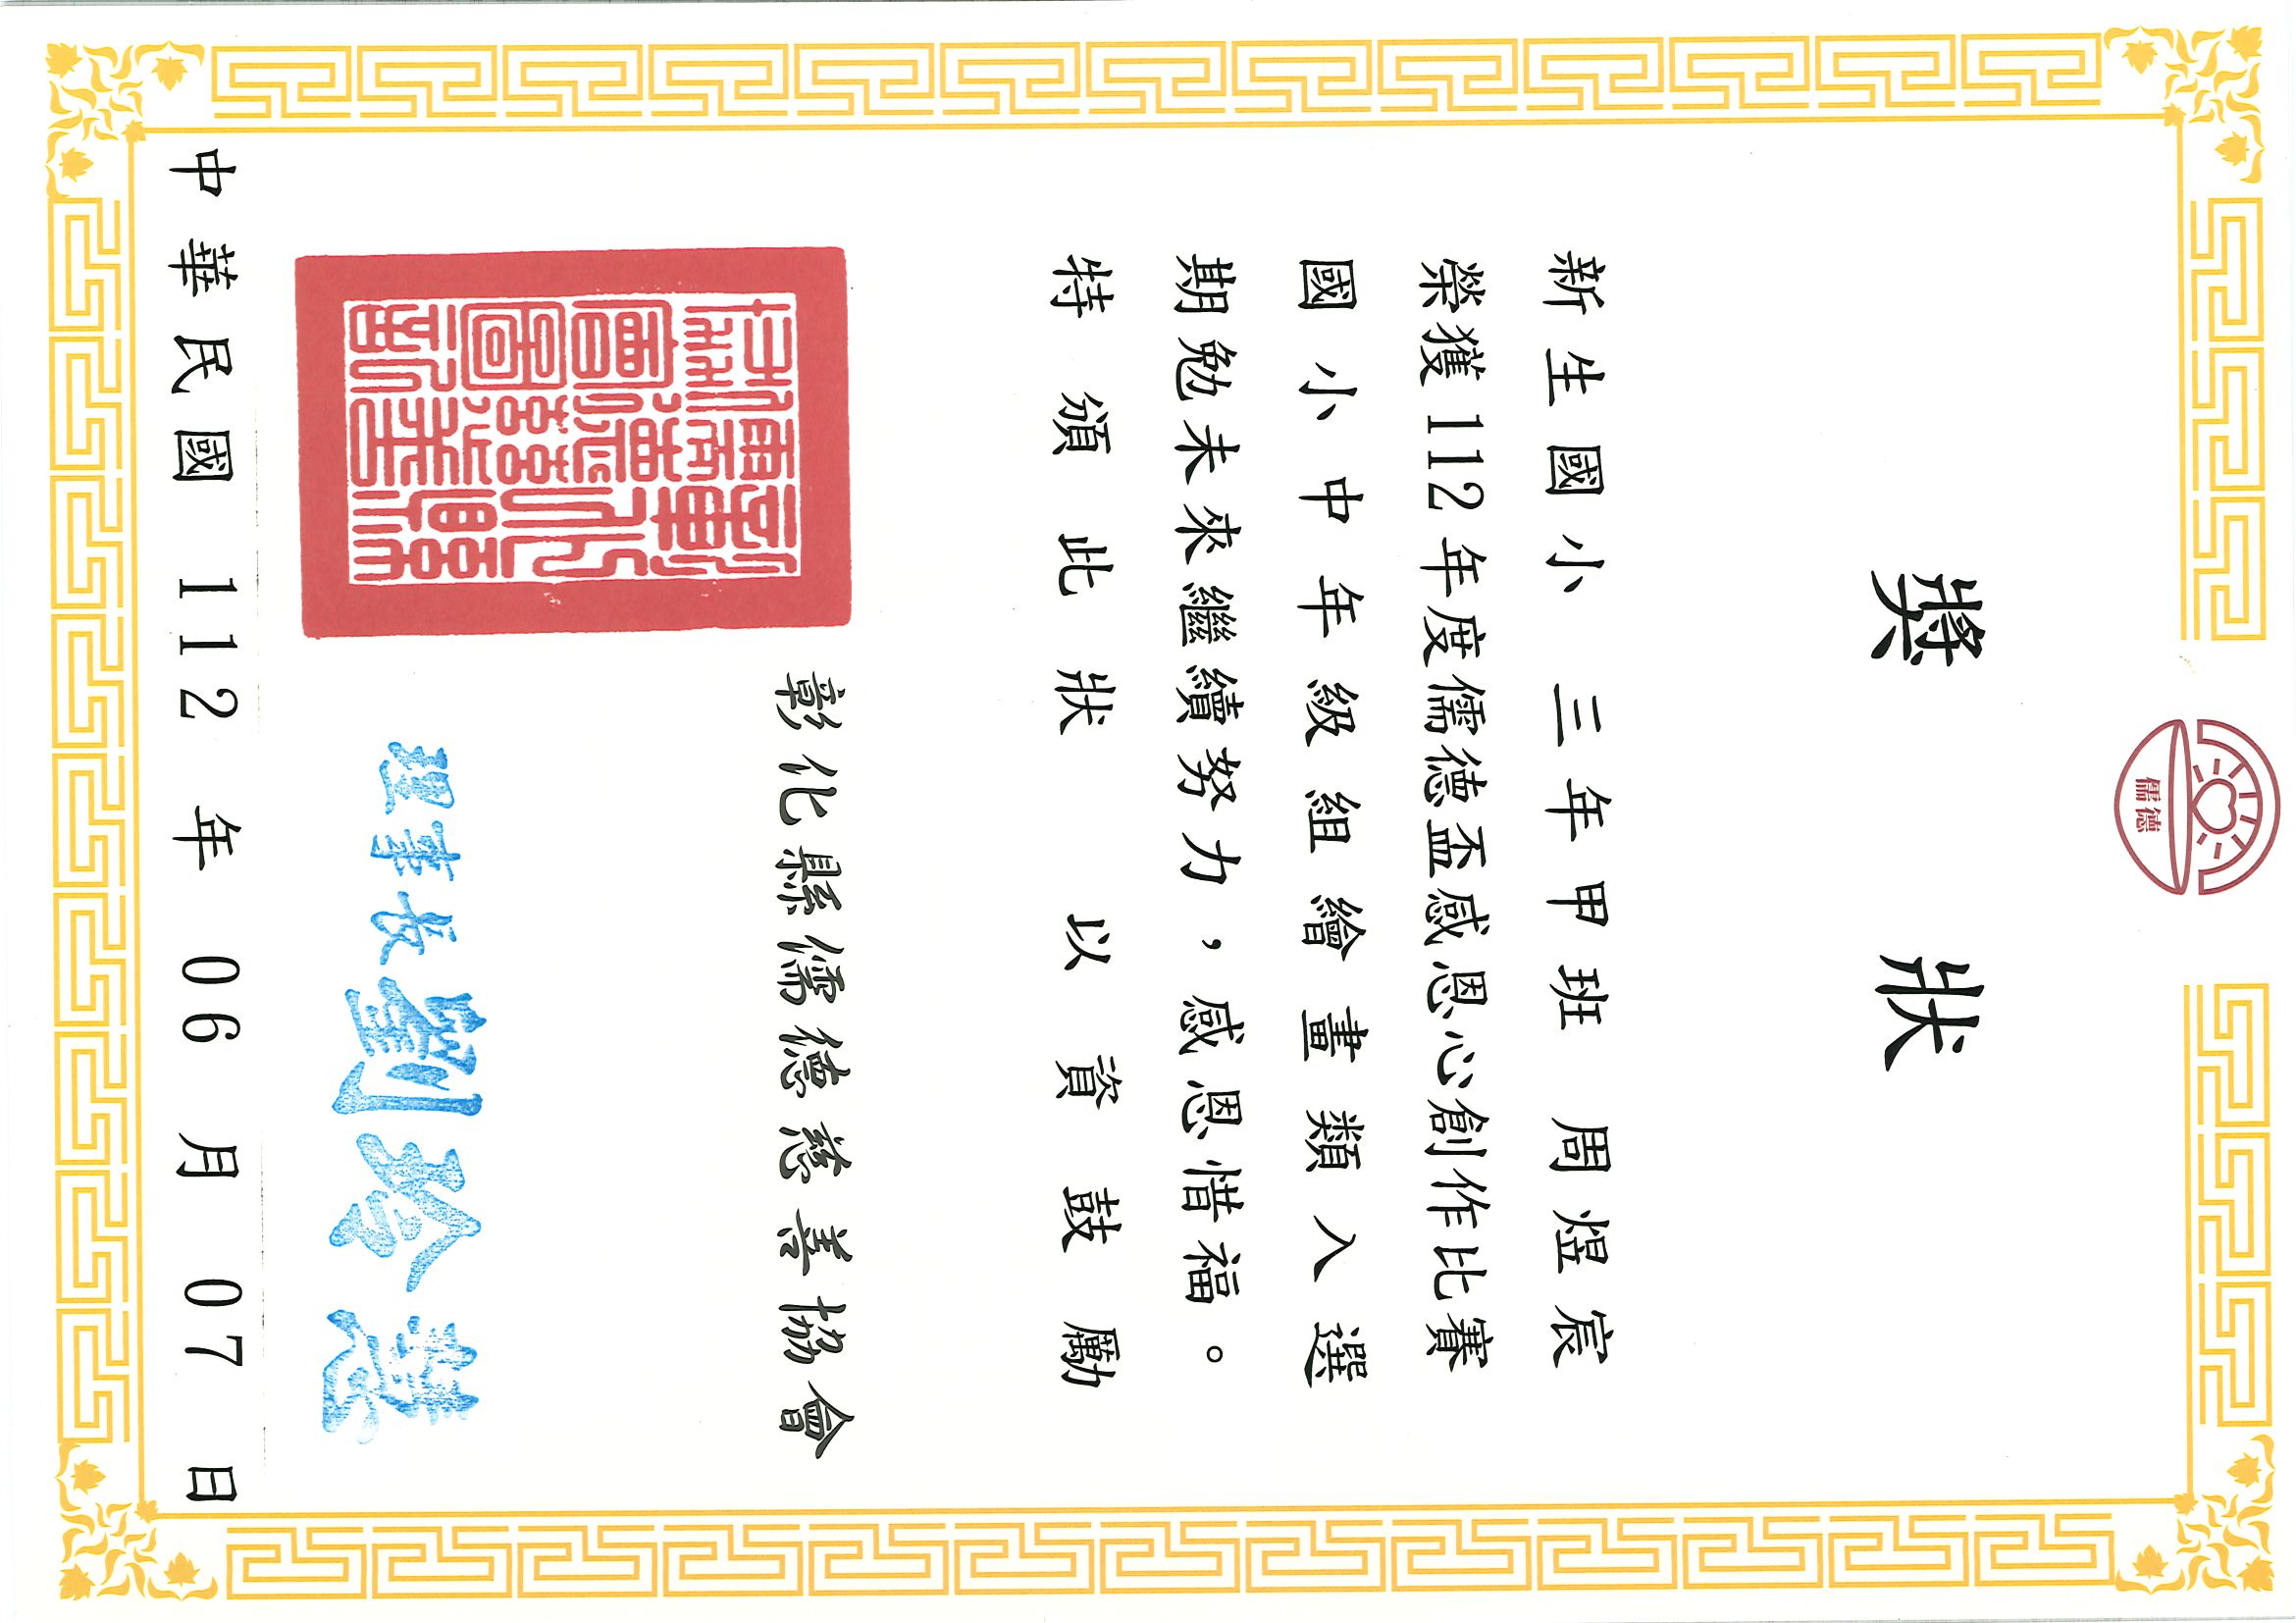 儒德
獎狀
新生國小 三年甲班 周煜宸
榮獲112年度儒德盃感恩心創作比賽
國小中年級組繪畫類入選
期勉未來繼續努力,感恩惜福。
特頒此狀 以資鼓勵
彰化縣儒德慈善協會
理事長劉玲慧
中華民國 112 年 06 月 07 日